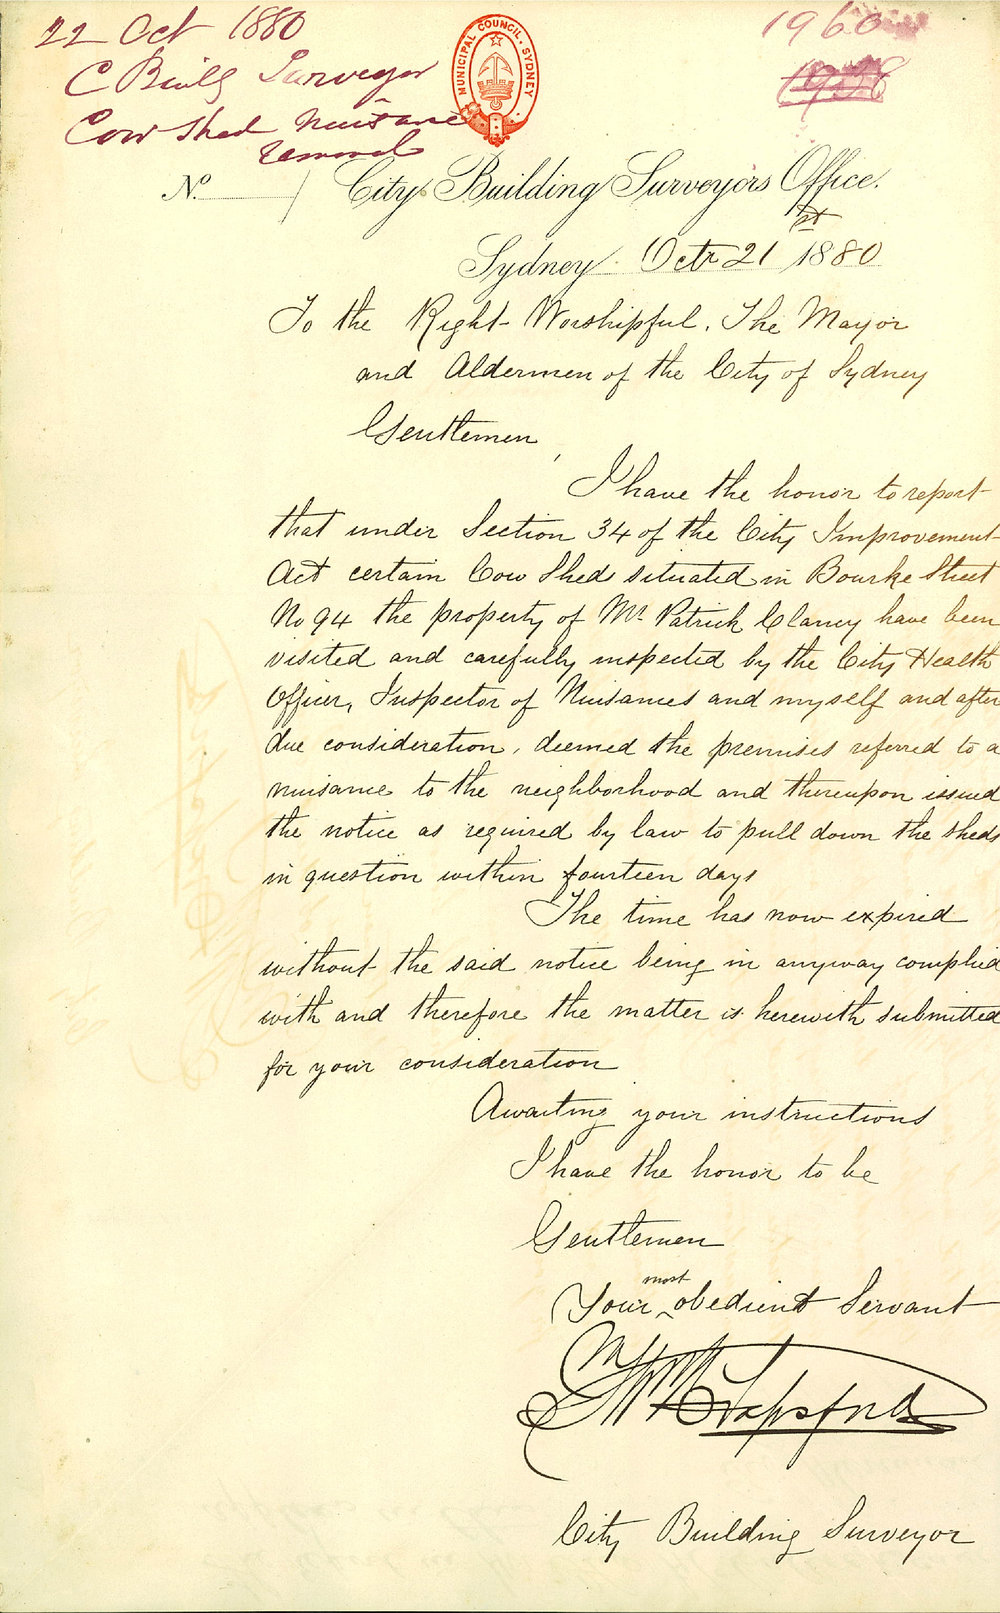 22 Oct 1880
C Build Surveyor
Cow Shed Nuisance
removal
MUNICIPAL COUNCIL. SYDNEY
1960
1958
No. City Building Surveyors Office.
Sydney. Octr 21st 1880
To the Right Worshipful. The Mayor
and Aldermen of the City of Sydney
Gentlemen,
I have the honor to report
that under Section 34 of the City Improvement
Act certain Cow Sheds situated in Bourke Street
No 94 the property of Mr. Patrick Clancy have been
visited and carefully inspected by the City Health
Officer, Inspector of Nuisances and myself and after
due consideration, deemed the premises referred to a
nuisance to the neighborhood and thereupon issued
the notice as required by law to pull down the sheds
in question within fourteen days
The time has now expired
without the said notice being in anyway complied
with and therefore the matter is herewith submitted
for your consideration
Awaiting your instructions
I have the honor to be
Gentlemen
Your most obedient Servant
City Building Surveyor